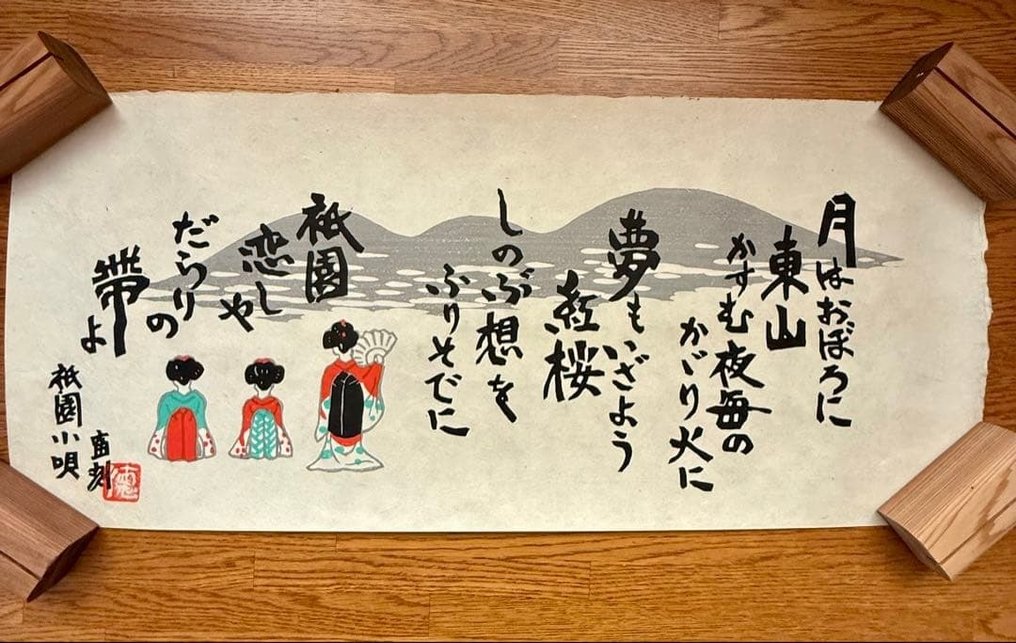 月はおぼろに
東山
かすむ夜毎の
かゞり火に
夢もいざよう
紅桜
しのぶ想を
ふりそでに
祇園
恋しや
だらりの
帯よ
祇園小唄
徳